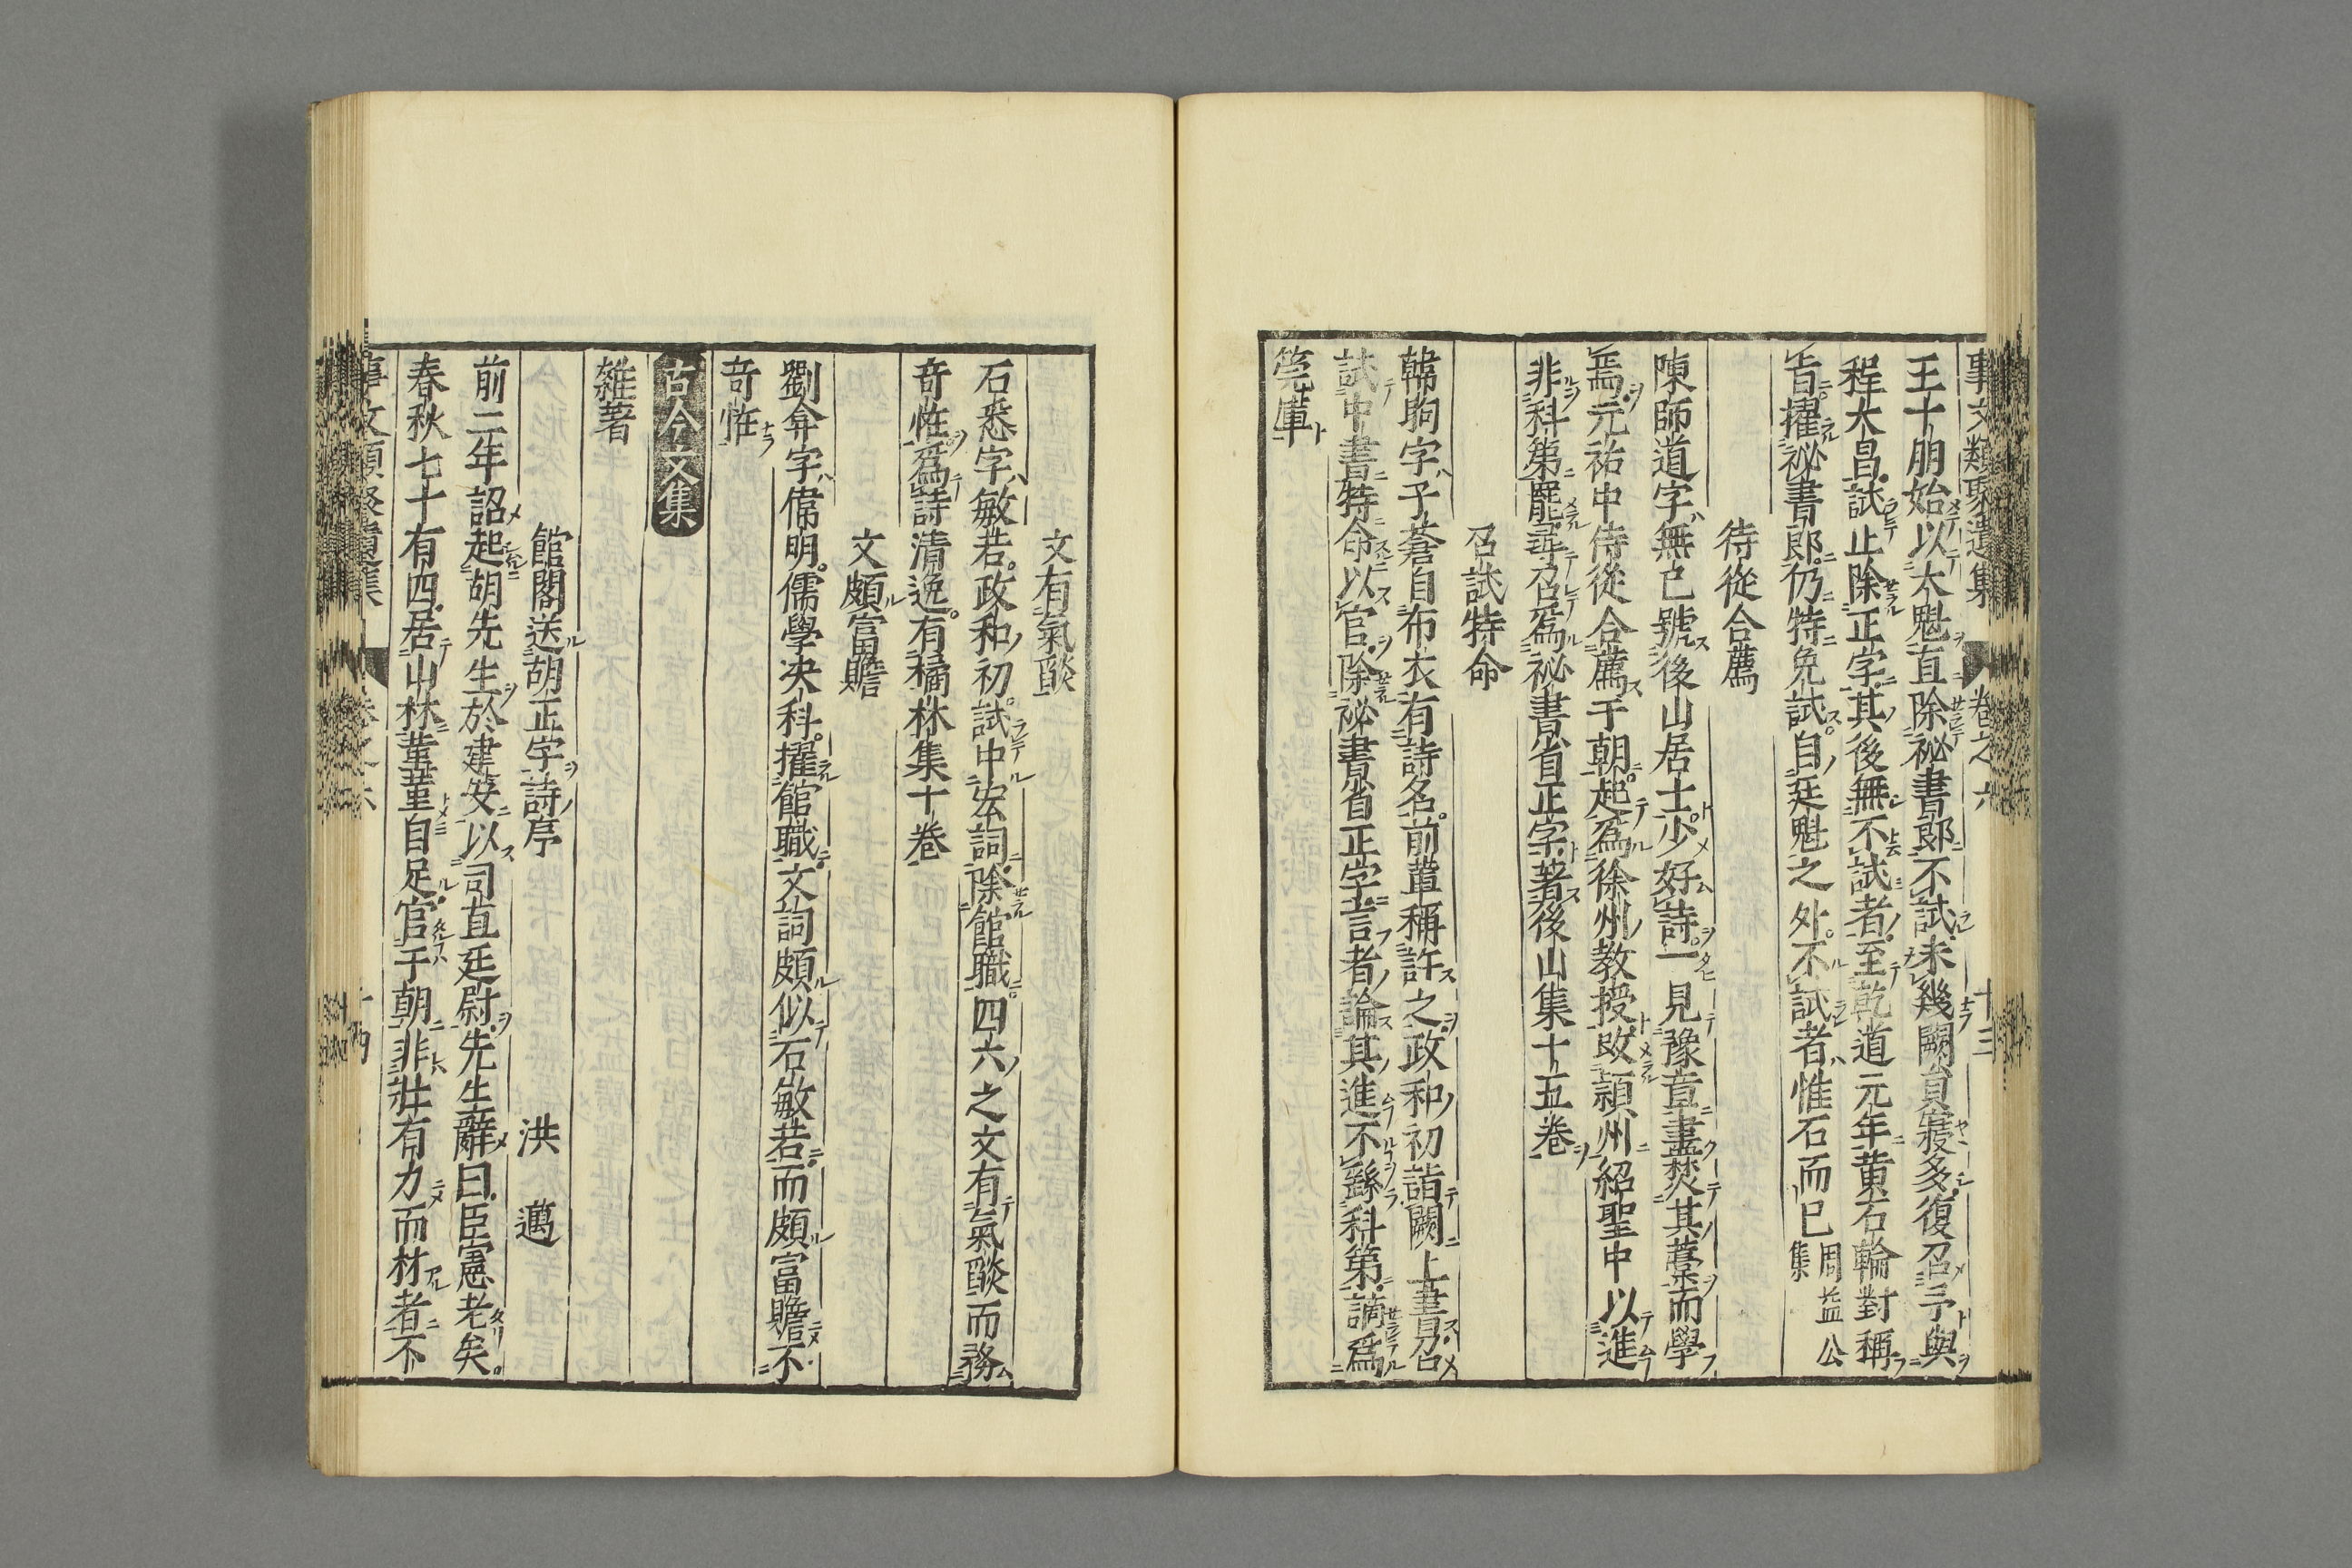 事文類聚遺集 卷之六 十三
王十朋始以大魁直除祕書郎不試未幾闕員寢多復召予與
程大昌試止除正字其後無不試者至乾道元年黄石輪對稱
旨擢祕書郎仍特免試自廷魁之外不試者惟石而已周益公集
待從合薦
陳師道字無已號後山居士少好詩一見豫章盡焚其藁而學
焉元祐中侍從合薦于朝起爲徐州教授改潁州紹聖中以進
非科第罷尋召爲祕書省正字著後山集十五卷
召試特命
韓駒字子蒼自布衣有詩名前輩稱許之政和初詣闕上書易召
試中書特命以官除祕書省正字言者論其進不繇科第謫爲
筦庫
文有氣燄
石悉字敏若政和初試中宏詞除館職四六之文有氣燄而務
奇恠爲詩清逸有橘林集十卷
文頗富贍
劉弇字偉明儒學决科擢館職文詞頗似石敏若而頗富贍不
奇恠
古今文集
雜著
館閣送胡正字詩序 洪 邁
前二年詔起胡先生於建安以司直廷尉先生辭曰臣憲老矣
春秋七十有四居山林菫菫自足官于朝非壯有力而材者不
事文類聚遺集 卷之六 十四